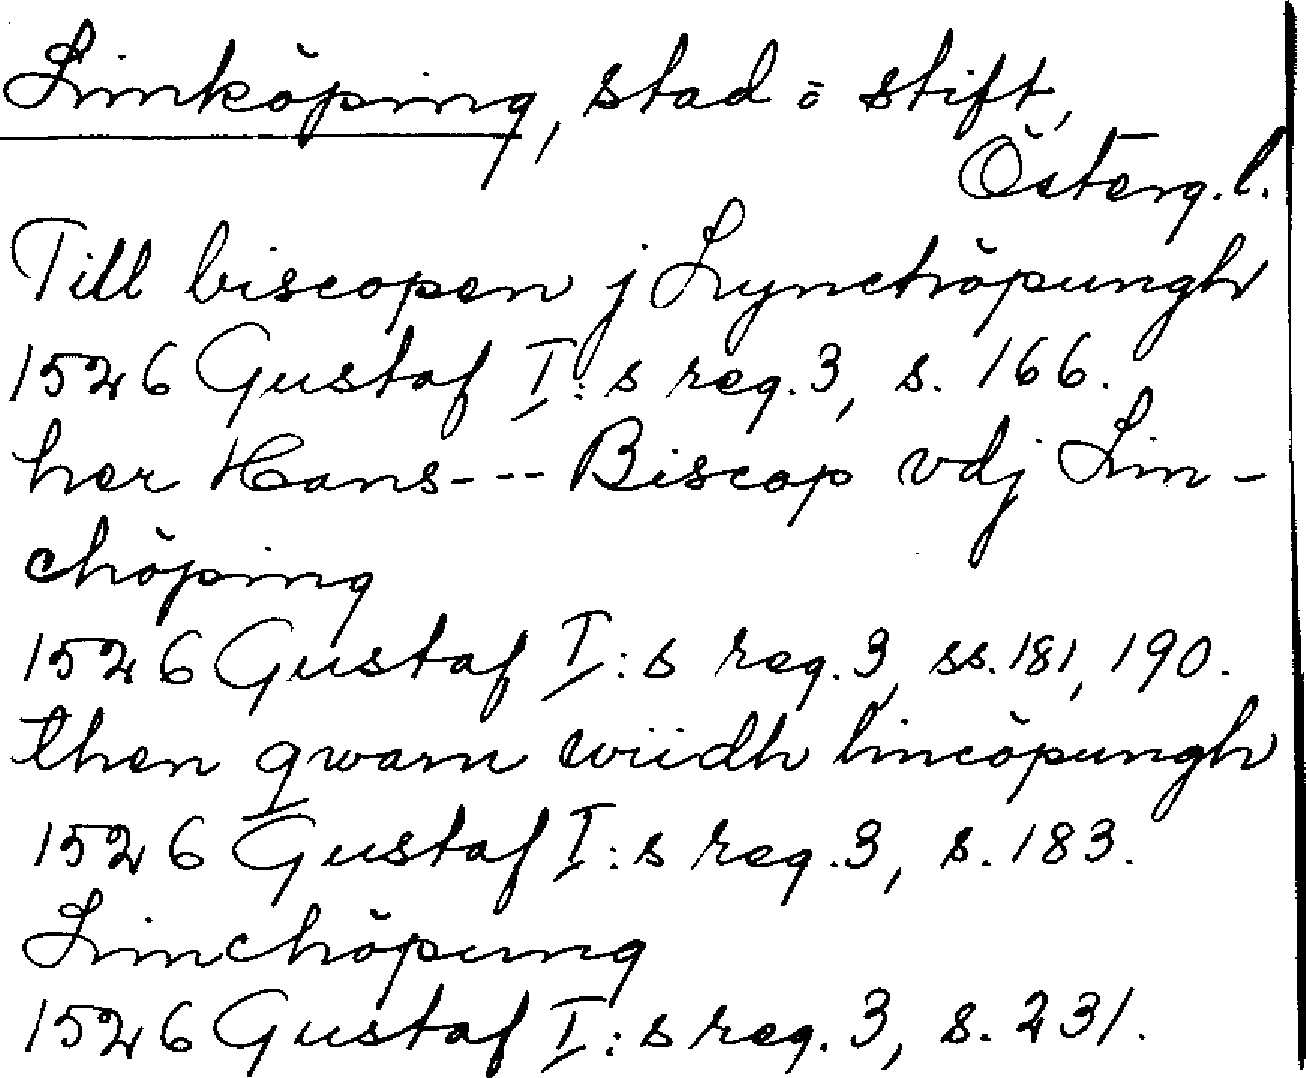 Linköping, stad o stift,
Österg.l.
Till biscopen j Lynchöpungh
1526 Gustaf I:s reg. 3, s. 166.
her Hans--- Biscop vdj Lin-
chöping
1526 Gustaf I:s reg. 3, ss. 181, 190.
then qwarn wiidh lincöpungh
1526 Gustaf I:s reg. 3, s. 183.
Linchöpung
1526 Gustaf I:s reg. 3, s. 231.